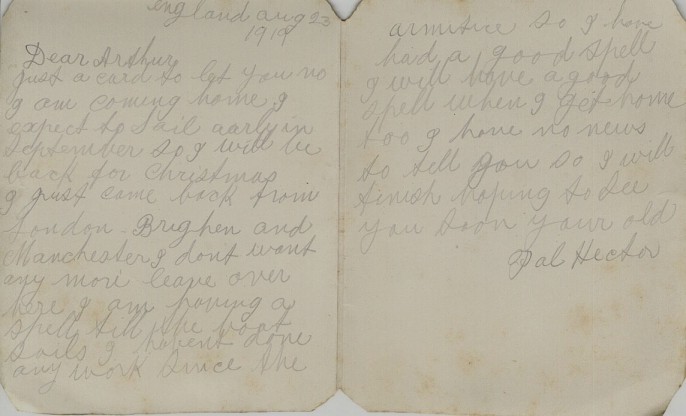 England aug 23
1919
Dear Arthur
just a card to let you no
I am coming home I
expect to sail aarly in
September so I will be
back for Christmas
I just came back from
London Brighen and
Manchester I dont want
any more leave over
here I am having a
spell till the boat
sails I havent done
any work since the
armitice so I have
had a good spell
I will have a good
spell when I get home
too I have no news
to tell you so I will
finish hoping to see
you soon your old
Pal Hector